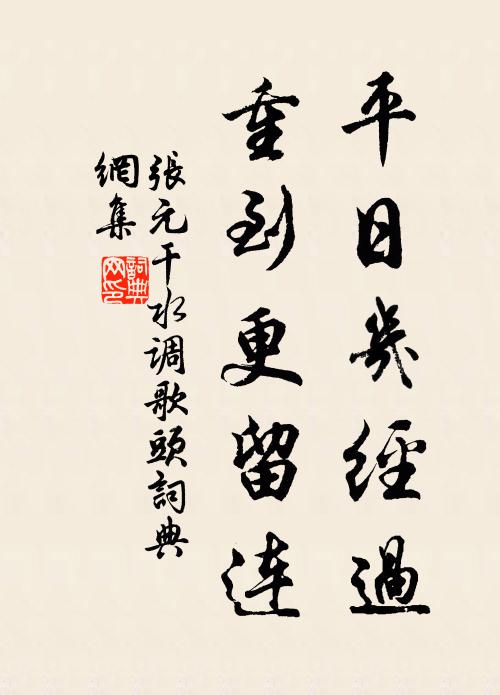 平日幾經過
重到更留連
張元干水调歌頭詞典
網集
詞典網印